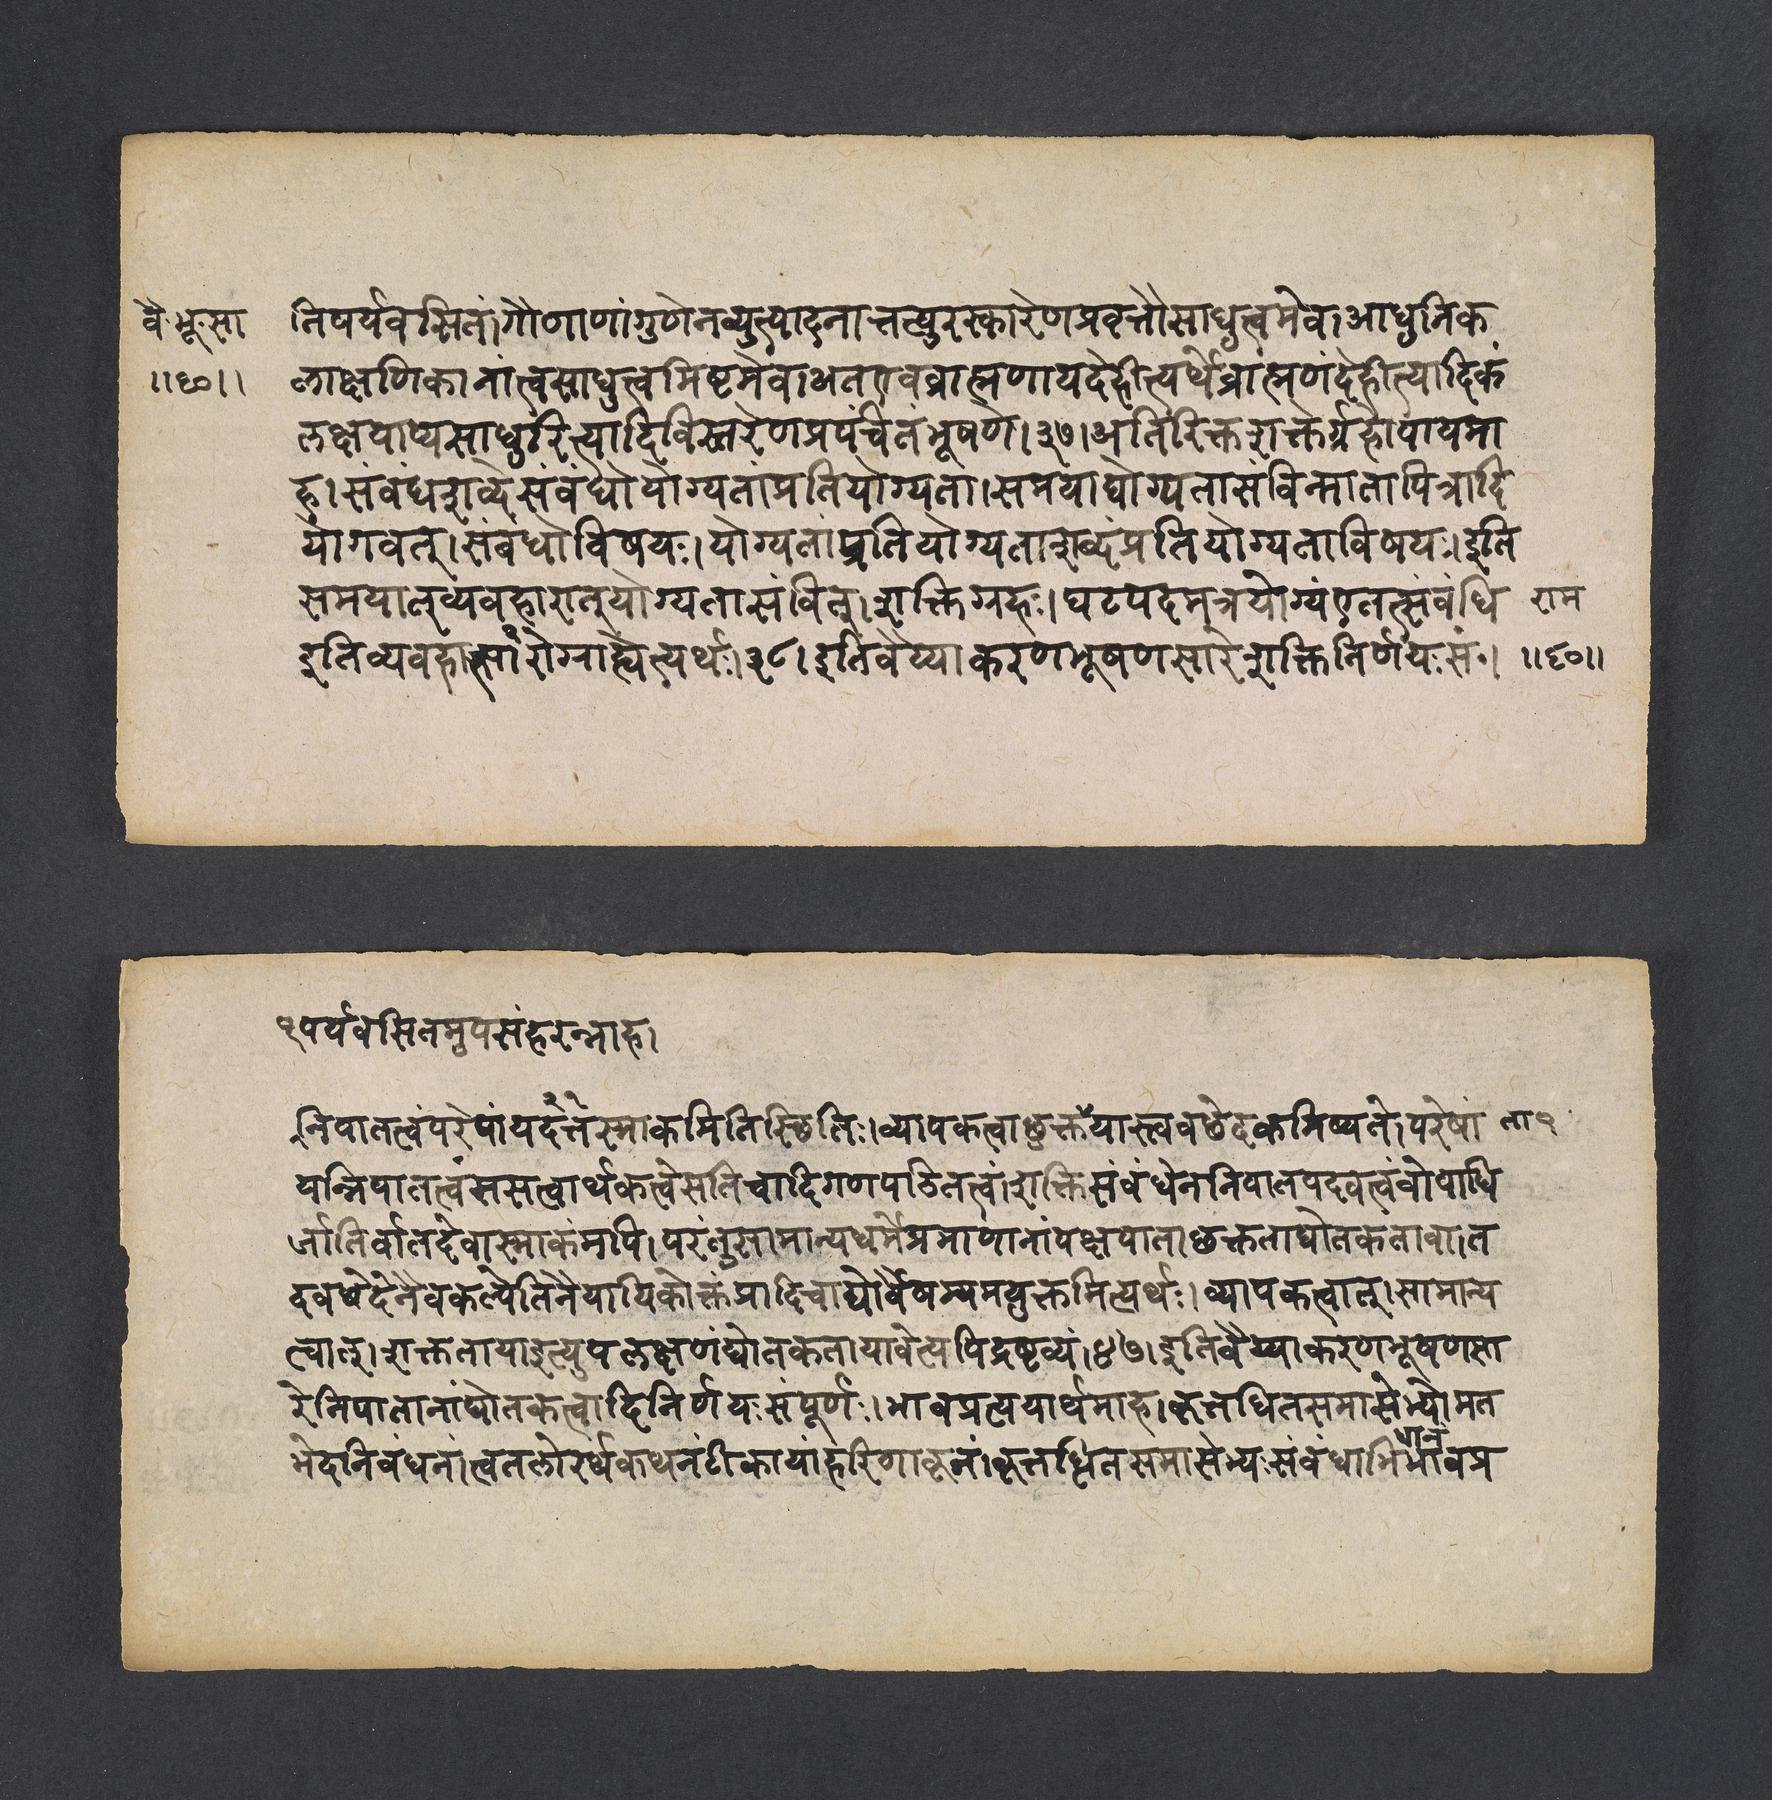 वै·भू·सा
॥६०॥
तिपर्यवसितं।गौणाणांगुणेनव्युत्पादनात्तत्पुरस्कारेणप्रवृत्तौसाधुत्वमेव।आधुनिक
लाक्षणिकानांत्वसाधुत्वमिष्टमेव।अतएवब्राह्मणायदेहीत्यर्थेब्राह्मणंदेहीत्यादिकं
लक्षणयाप्यसाधुरित्यादिविस्तरेणप्रपंचितंभूषणे।३७।अतिरिक्तशक्तेर्ग्रहोपायमा
ह।संबंधशब्देसंबंधोयोग्यतांप्रतियोग्यता।समयाद्योग्यतासंविन्मातापित्रादि
योगवत्।संबंधोविषयः।योग्यतांप्रतियोग्यताशब्दंप्रतियोग्यताविषयः।इति
समयात्व्यवहारात्योग्यतासंवित्।शक्तिग्रहः।घटपदमत्रयोग्यंएतत्संबंधि
राम
इतिव्यवहारात्सारोग्राह्येत्यर्थः।३८।इतिवैय्याकरणभूषणसारेशक्तिनिर्णयःसं·।
॥६०॥
१पर्यवसितमुपसंहरन्नाह।
निपातत्वंपरेषांयत्तदस्माकमितिस्थितिः।व्यापकत्वाछक्तयास्त्ववछेदकमिष्यते।परेषां
ता२
यन्निपातत्वंअसत्वार्थकत्वेसतिचादिगणपठितत्वं।शक्तिसंबंधेननिपातपदवत्वंवोपाधि
र्जातिर्वातदेवास्माकंमपि।परंतुसामान्यधर्मेप्रमाणानांपक्षपाताछक्तताद्योतकतावा।त
दवछेदेनैवकल्प्येतिनैयायिकोक्तंप्रादिचाद्योर्वैषम्यमयुक्तमित्यर्थः।व्यापकत्वात्।सामान्य
त्वात्।शक्ततायाइत्युपलक्षणंद्योतकतायावेत्यपिद्रष्टव्यं।४७।इतिवैय्याकरणभूषणसा
रेनिपातानांद्योतकत्वादिनिर्णयःसंपूर्णः।भावप्रत्ययार्थमाह।कृत्तधितसमासेभ्योमत
भेदनिबंधनं।त्वतलोरर्थकथनंटीकायांहरिणाकृतं।कृत्तधितसमासेभ्यःसंबंधाभिधानंभावप्र